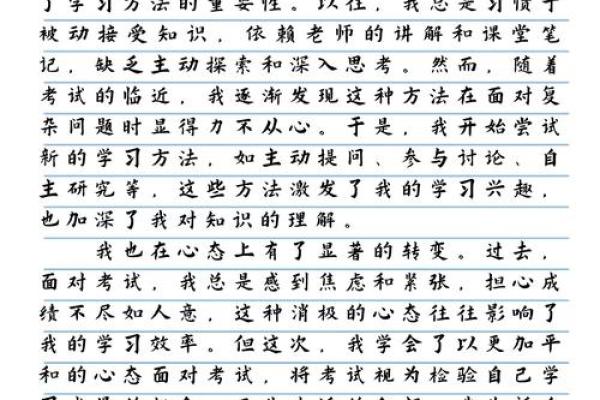 了学习方法的重要性。以往，我总是习惯于
被动接受知识，依赖老师的讲解和课堂笔
记，缺乏主动探索和深入思考。然而，随着
考试的临近，我逐渐发现这种方法在面对复
杂问题时显得力不从心。于是，我开始尝试
新的学习方法，如主动提问、参与讨论、自
主研究等，这些方法激发了我的学习兴趣，
也加深了我对知识的理解。
我也在心态上有了显著的转变。过去，
面对考试，我总是感到焦虑和紧张，担心成
绩不尽如人意，这种消极的心态往往影响了
我的学习效率。但这次，我学会了以更加平
和的心态面对考试，将考试视为检验自己学